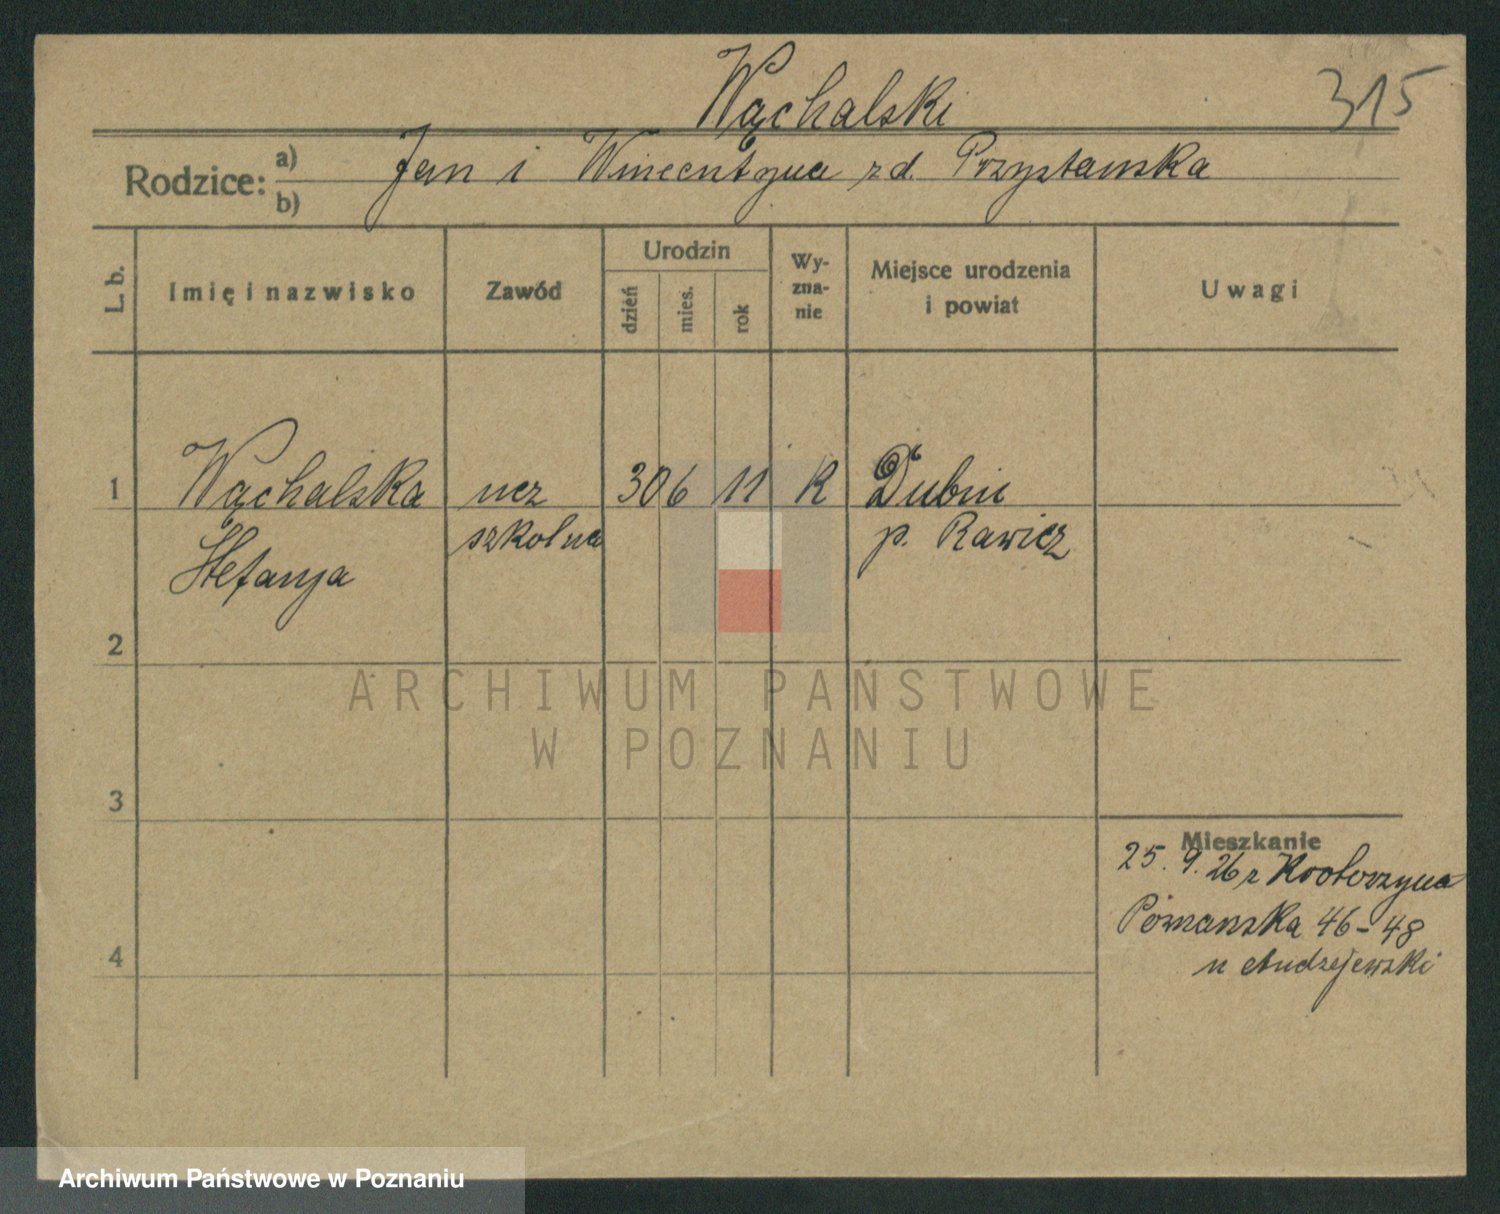 Wąchalski
315
Rodzice: a) b)
Jan i Wincentyna zd. Przystanska
L. b.
Imię i nazwisko
Zawód
Urodzin
dzień
mies.
rok
Wy-
zna-
nie
Miejsce urodzenia
i powiat
Uwagi
1
Wąchalska
ucz
30 6 11
K
Dubin
szkolna
p. Rawicz
Stefanja
2
ARCHIWUM PAŃSTWOWE
W POZNANIU
3
Mieszkanie
25. 9. 26 z Krotoszyna
Poznanska 46-48
u Andrzejewski
4
Archiwum Państwowe w Poznaniu